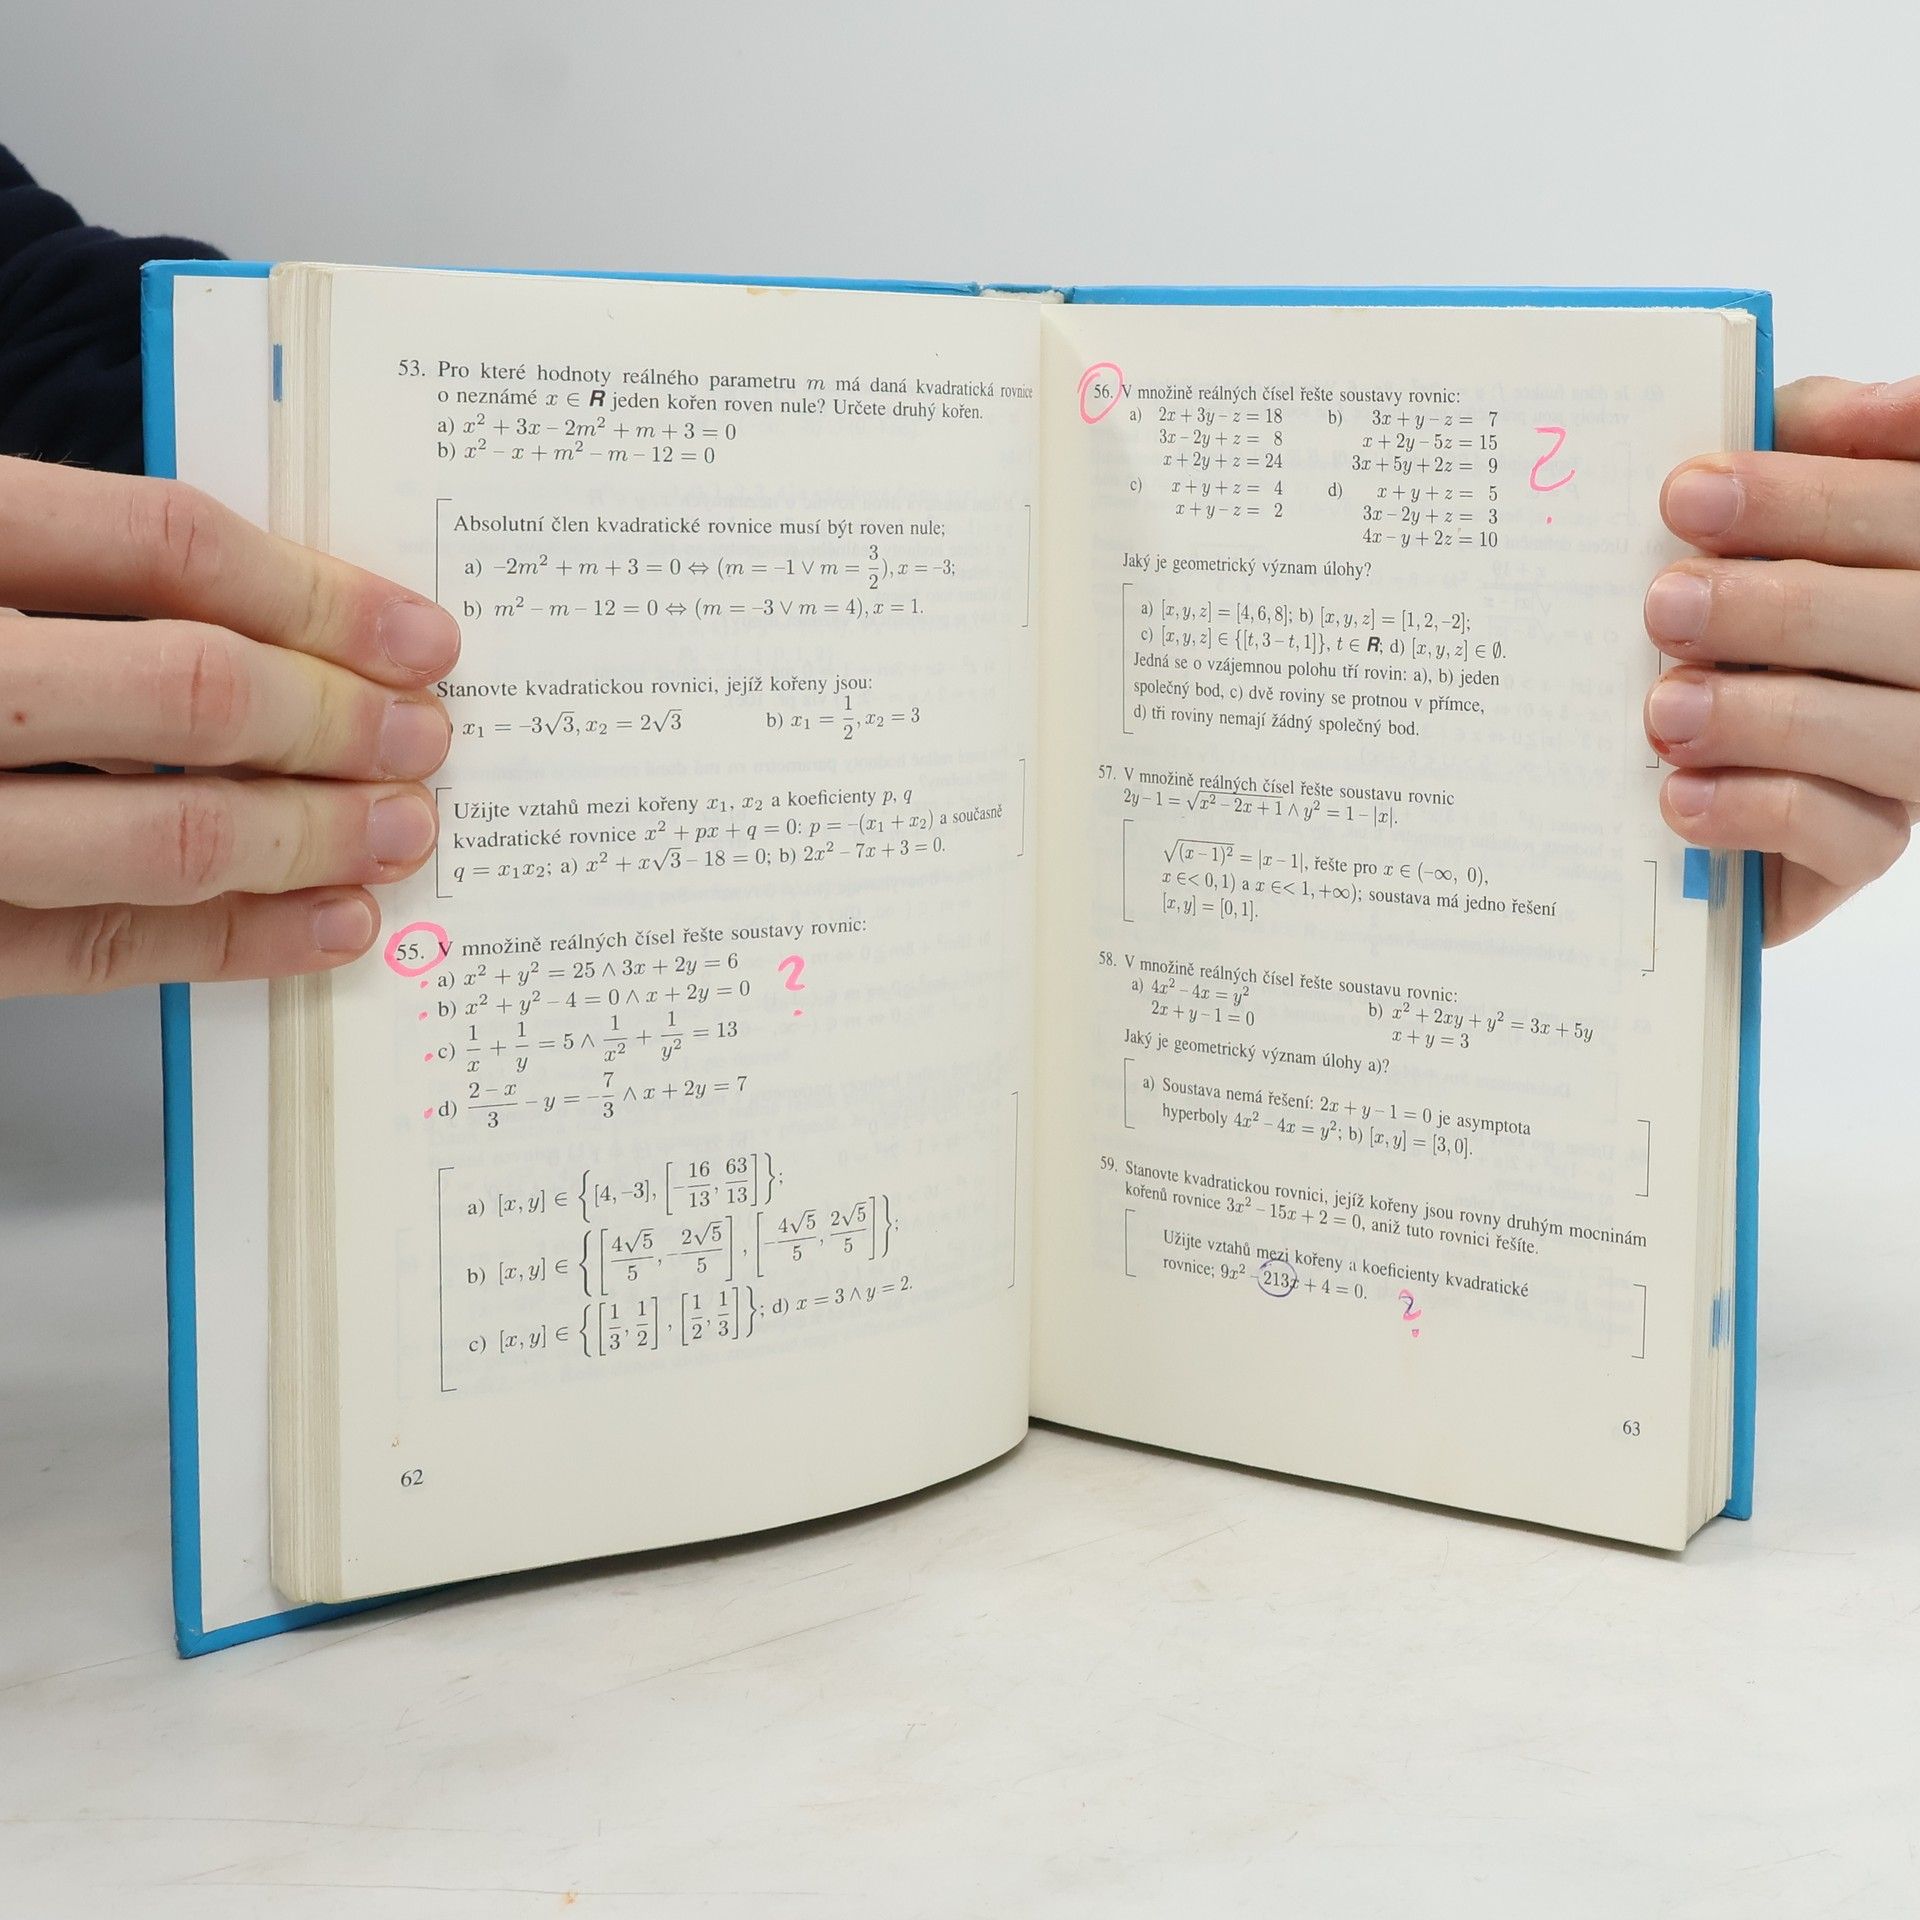 53. Pro které hodnoty reálného parametru m má daná kvadratická rovnice
o neznámé x ∈ R jeden kořen roven nule? Určete druhý kořen.
a) x² + 3x − 2m² + m + 3 = 0
b) x² − x + m² − m − 12 = 0
Absolutní člen kvadratické rovnice musí být roven nule;
a) −2m² + m + 3 = 0 ⇔ (m = −1 ∨ m = 3/2), x = −3;
b) m² − m − 12 = 0 ⇔ (m = −3 ∨ m = 4), x = 1.
Stanovte kvadratickou rovnici, jejíž kořeny jsou:
) x₁ = −3√3, x₂ = 2√3 b) x₁ = 1/2, x₂ = 3
Užijte vztahů mezi kořeny x₁, x₂ a koeficienty p, q
kvadratické rovnice x² + px + q = 0: p = −(x₁ + x₂) a současně
q = x₁x₂; a) x² + x√3 − 18 = 0; b) 2x² − 7x + 3 = 0.
55. V množině reálných čísel řešte soustavy rovnic:
a) x² + y² = 25 ∧ 3x + 2y = 6 ?
b) x² + y² − 4 = 0 ∧ x + 2y = 0
c) 1/x + 1/y = 5 ∧ 1/x² + 1/y² = 13
d) (2 − x)/3 − y = −7/3 ∧ x + 2y = 7
a) [x, y] ∈ {[4, −3], [−16/13, 63/13]};
b) [x, y] ∈ {[4√5/5, −2√5/5], [−4√5/5, 2√5/5]};
c) [x, y] ∈ {[1/3, 1/2], [1/2, 1/3]}; d) x = 3 ∧ y = 2.
62
56. V množině reálných čísel řešte soustavy rovnic:
a) 2x + 3y − z = 18 b) 3x + y − z = 7
3x − 2y + z = 8 x + 2y − 5z = 15 ?
x + 2y + z = 24 3x + 5y + 2z = 9
c) x + y + z = 4 d) x + y + z = 5
x + y − z = 2 3x − 2y + z = 3
4x − y + 2z = 10
Jaký je geometrický význam úlohy?
a) [x, y, z] = [4, 6, 8]; b) [x, y, z] = [1, 2, −2];
c) [x, y, z] ∈ {[t, 3 − t, 1]}, t ∈ R; d) [x, y, z] ∈ ∅.
Jedná se o vzájemnou polohu tří rovin: a), b) jeden
společný bod, c) dvě roviny se protnou v přímce,
d) tři roviny nemají žádný společný bod.
57. V množině reálných čísel řešte soustavu rovnic
2y − 1 = √(x² − 2x + 1) ∧ y² = 1 − |x|.
√((x − 1)²) = |x − 1|, řešte pro x ∈ (−∞, 0),
x ∈< 0, 1) a x ∈< 1, +∞); soustava má jedno řešení
[x, y] = [0, 1].
58. V množině reálných čísel řešte soustavu rovnic:
a) 4x² − 4x = y² b) x² + 2xy + y² = 3x + 5y
2x + y − 1 = 0 x + y = 3
Jaký je geometrický význam úlohy a)?
a) Soustava nemá řešení: 2x + y − 1 = 0 je asymptota
hyperboly 4x² − 4x = y²; b) [x, y] = [3, 0].
59. Stanovte kvadratickou rovnici, jejíž kořeny jsou rovny druhým mocninám
kořenů rovnice 3x² − 15x + 2 = 0, aniž tuto rovnici řešíte.
Užijte vztahů mezi kořeny a koeficienty kvadratické
rovnice; 9x² − 213x + 4 = 0. ?
63